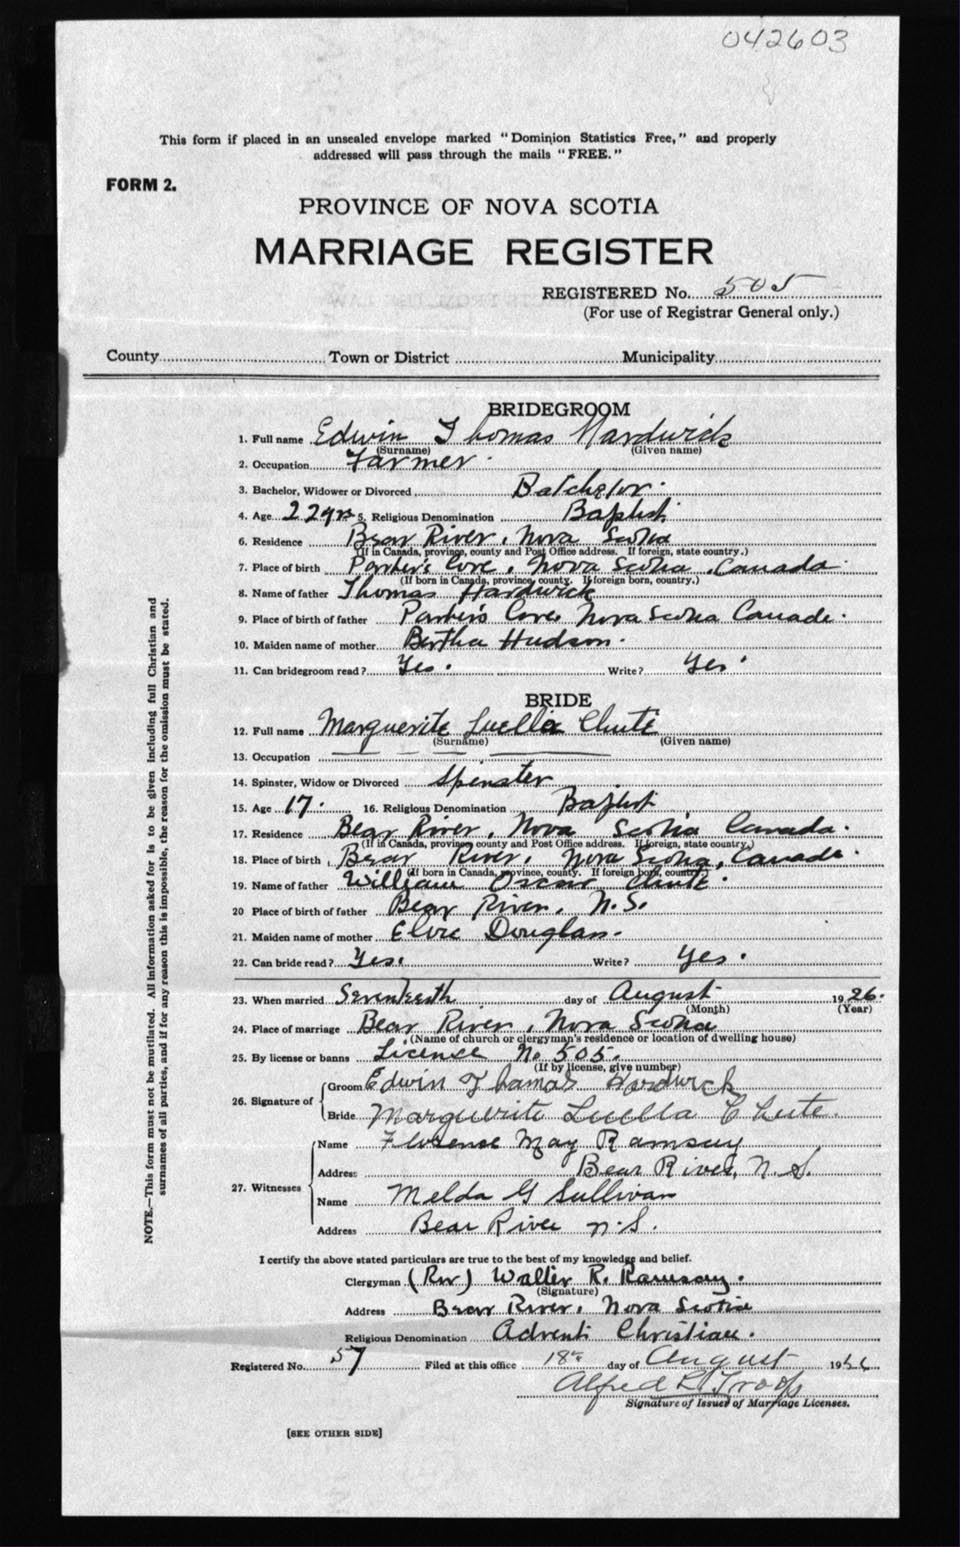 042603
This form if placed in an unsealed envelope marked "Dominion Statistics Free," and properly
addressed will pass through the mails "FREE."
FORM 2.
PROVINCE OF NOVA SCOTIA
MARRIAGE REGISTER
REGISTERED No. 505
(For use of Registrar General only.)
County Town or District Municipality
BRIDEGROOM
1. Full name Edwin Thomas Hardwick
(Surname) (Given name)
2. Occupation Farmer
3. Bachelor, Widower or Divorced Batchelor
4. Age 22 yrs 5. Religious Denomination Baptist
6. Residence Bear River, Nova Scotia
(If in Canada, province, county and Post Office address. If foreign, state country.)
7. Place of birth Parker's Cove, Nova Scotia, Canada
(If born in Canada, province, county. If foreign born, country.)
8. Name of father Thomas Hardwick
9. Place of birth of father Parker's Cove, Nova Scotia Canada
10. Maiden name of mother Bertha Hudson
11. Can bridegroom read? Yes. Write? Yes.
BRIDE
12. Full name Marguerite Luella Chute
(Surname) (Given name)
13. Occupation
14. Spinster, Widow or Divorced Spinster
15. Age 17. 16. Religious Denomination Baptist
17. Residence Bear River, Nova Scotia Canada.
(If in Canada, province, county and Post Office address. If foreign, state country,)
18. Place of birth Bear River, Nova Scotia, Canada.
(If born in Canada, province, county. If foreign born, country.)
19. Name of father William Oscar Chute.
20 Place of birth of father Bear River, N.S.
21. Maiden name of mother Douglas.
22. Can bride read? Yes. Write? Yes.
23. When married Seventeenth day of August 1926.
(Month) (Year)
24. Place of marriage Bear River, Nova Scotia
(Name of church or clergyman's residence or location of dwelling house)
25. By license or banns Licence No 505.
(If by license, give number)
26. Signature of
Groom Edwin Thomas Hardwick
Bride Marguerite Luella Chute.
27. Witnesses
Name Florense May Ramsay
Address Bear River, N.S.
Name Melda G Sullivan
Address Bear River N.S.
I certify the above stated particulars are true to the best of my knowledge and belief.
Clergyman (Rev) Walter R. Ramsay.
(Signature)
Address Bear River, Nova Scotia
Religious Denomination Advent Christian.
Registered No. 57 Filed at this office 18th day of August 1926
Alfred Troop
Signature of Issuer of Marriage Licenses.
[SEE OTHER SIDE]
NOTE.—This form must not be mutilated. All information asked for is to be given including full Christian and
surnames of all parties, and if for any reason this is impossible, the reason for the omission must be stated.